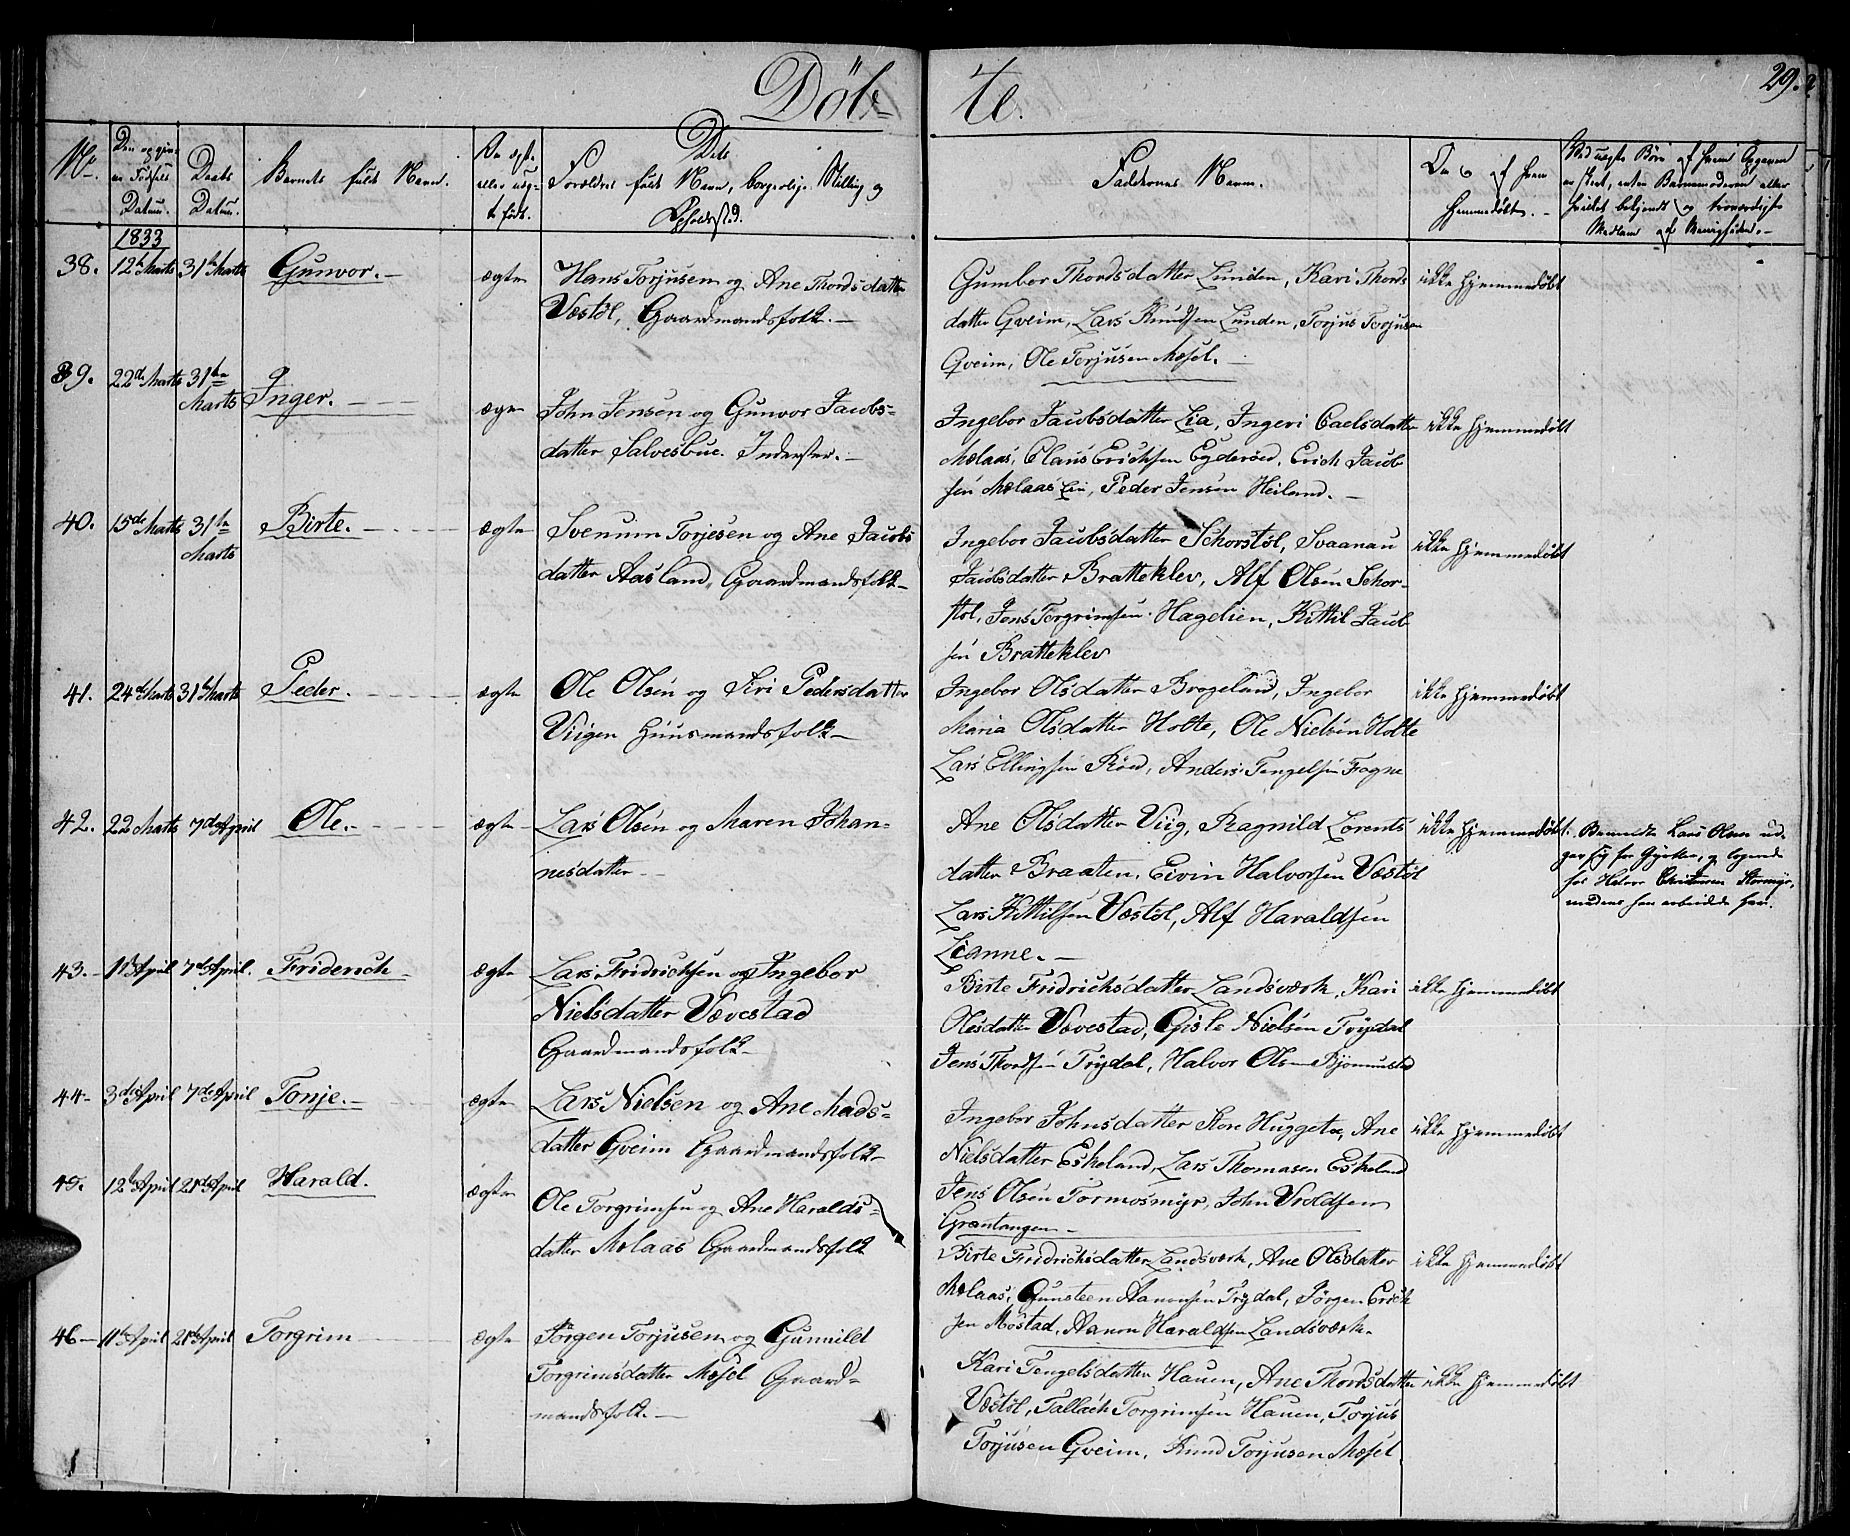 Döb- te.
29.
No
Den opgivne Fødsels Datum.
Daabs Datum.
Barnets fulde Navn.
Om ægte eller uægte født.
Dets Forældres fulde Navn, borgerlige Stilling og Opholdssted.
Faddernes Navn.
Om og af hvem hjemmedøbt.
Ved uægte Børn af hvem Opgaven er skeet, enten Barnemoderen eller hvilket bekjendt og troværdigt Medlem af Menigheden.
1833
38. 12te Marts 31te Marts Gunvor. ægte
Hans Torjusen og Ane Thordsdatter
Væstøl, Gaardmandsfolk.
Gumbor Thordsdatter Lunden, Kari Thords
datter Gveim, Lars Knudsen Lunden, Torjus Torjusen
Gveim, Ole Torjusen Mesel.
ikke hjemmedøbt
39. 22de Marts 31te Marts Inger. ægte
John Jensen og Gunvor Jacobs-
datter Salvesbue. Inderster.
Ingebor Jacobsdatter Lia, Ingeri Caelsdatter
Mølaas, Claus Erichsen Egderøed, Erich Jacob
sen Mølaas Lia, Peder Jensen Heiland.
ikke hjemmedøbt
40. 15de Marts 31te Marts Birte. ægte
Svenum Torjesen og Ane Jacobs
datter Aasland, Gaardmandsfolk
Ingebor Jacobsdatter Schorstøl, Svaanau
Jacobsdatter Bratteklev, Alf Olsen Schor-
støl, Jens Torgrimsen Hagelien, Kittil Jacob
sen Bratteklev
ikke hjemmedøbt
41. 24de Marts 31te Marts Peder. ægte
Ole Olsen og Siri Pedersdatter
Viigen Huusmandsfolk
Ingebor Olsdatter Brogeland, Ingebor
Maria Olsdatter Holte, Ole Nielsen Holte
Lars Ellingsen Røed, Anders Tengelsen Fogne
ikke hjemmedøbt
42. 22 Marts 7de April Ole. ægte
Lars Olsen og Maren Johan-
nesdatter
Ane Olsdatter Viig, Ragnild Lorents
datter Braaten, Eivin Halvorsen Væstøl
Lars Kittilsen Væstøl, Alf Haraldsen
Lianne.
ikke hjemmedøbt.
Lars Olsen ud-
gav sig for og logerede
hos Halvor Christensen Stormyr,
medens han arbeidede her.
43. 1te April 7de April. Friderich ægte
Lars Fridrichsen og Ingebor
Nielsdatter Vævestad
Gaardmandsfolk
Birte Fridrichsdatter Landsværk, Kari
Olesdatter Vævestad, Gisle Nielsen Trydal
Jens Thordsen Trydal, Halvor Olsen Bjonnustad
ikke hjemmedøbt
44. 3de April 7de April Tonje. ægte
Lars Nielsen og Ane Mads-
datter Gveim Gaardmandsfolk
Ingebor Johnsdatter Store Huggeto, Ane
Nielsdatter Eskeland, Lars Thomasen Eskeland
Jens Olsen Tormosmyr, John Vroldsen
Grøntangen
ikke hjemmedøbt
45. 12te April 21de April Harald. ægte
Ole Torgrimsen og Ane Haralds-
datter Mølaas Gaardmandsfolk
Birte Fridrichsdatter Landsværk, Ane Olsdatter
Mølaas, Gunsteen Aanonsen Trydal, Jørgen Erich
sen Mostad, Aanon Haraldsen Landsværk.
ikke hjemmedøbt
46 11te April 21de April Torgrim ægte
Jørgen Torjusen og Gunnild
Torgrimsdatter Mesel Gaard-
mandsfolk.
Kari Tengelsdatter Hauen, Ane Thordsdatter
Væstøl, Tallach Torgrimsen Hauen, Torjus
Torjusen Gveim, Knud Torjusen Mesel
ikke hjemmedøbt